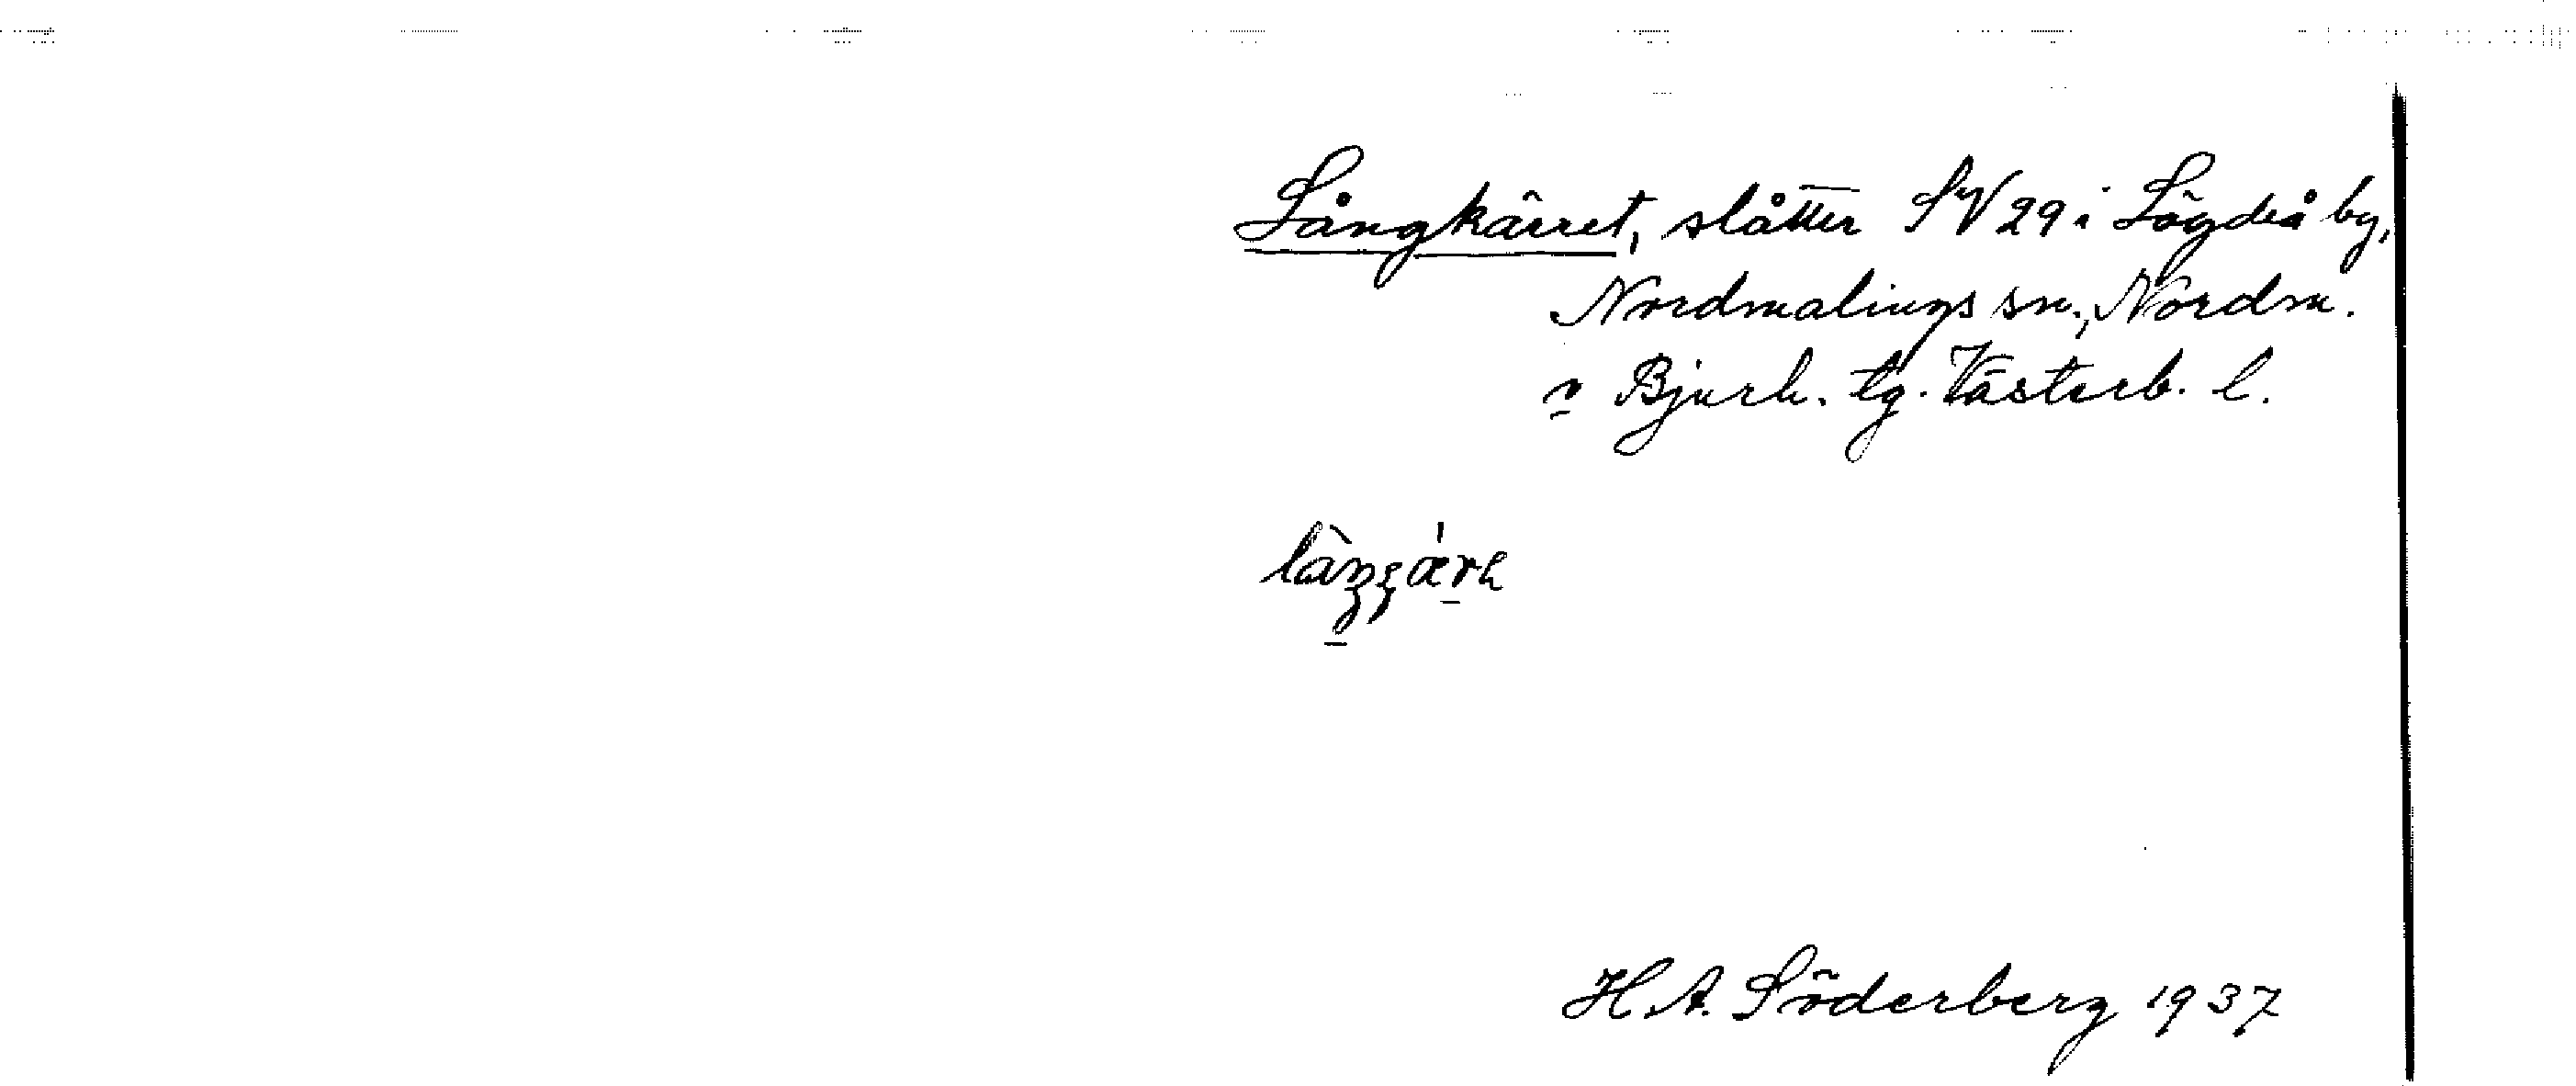 Långkärret, slåtter SV 29 i Lögdeå by,
Nordmalings sn., Nordm.
o Bjurh. tg. Västerb. l.
H.A. Söderberg 1937